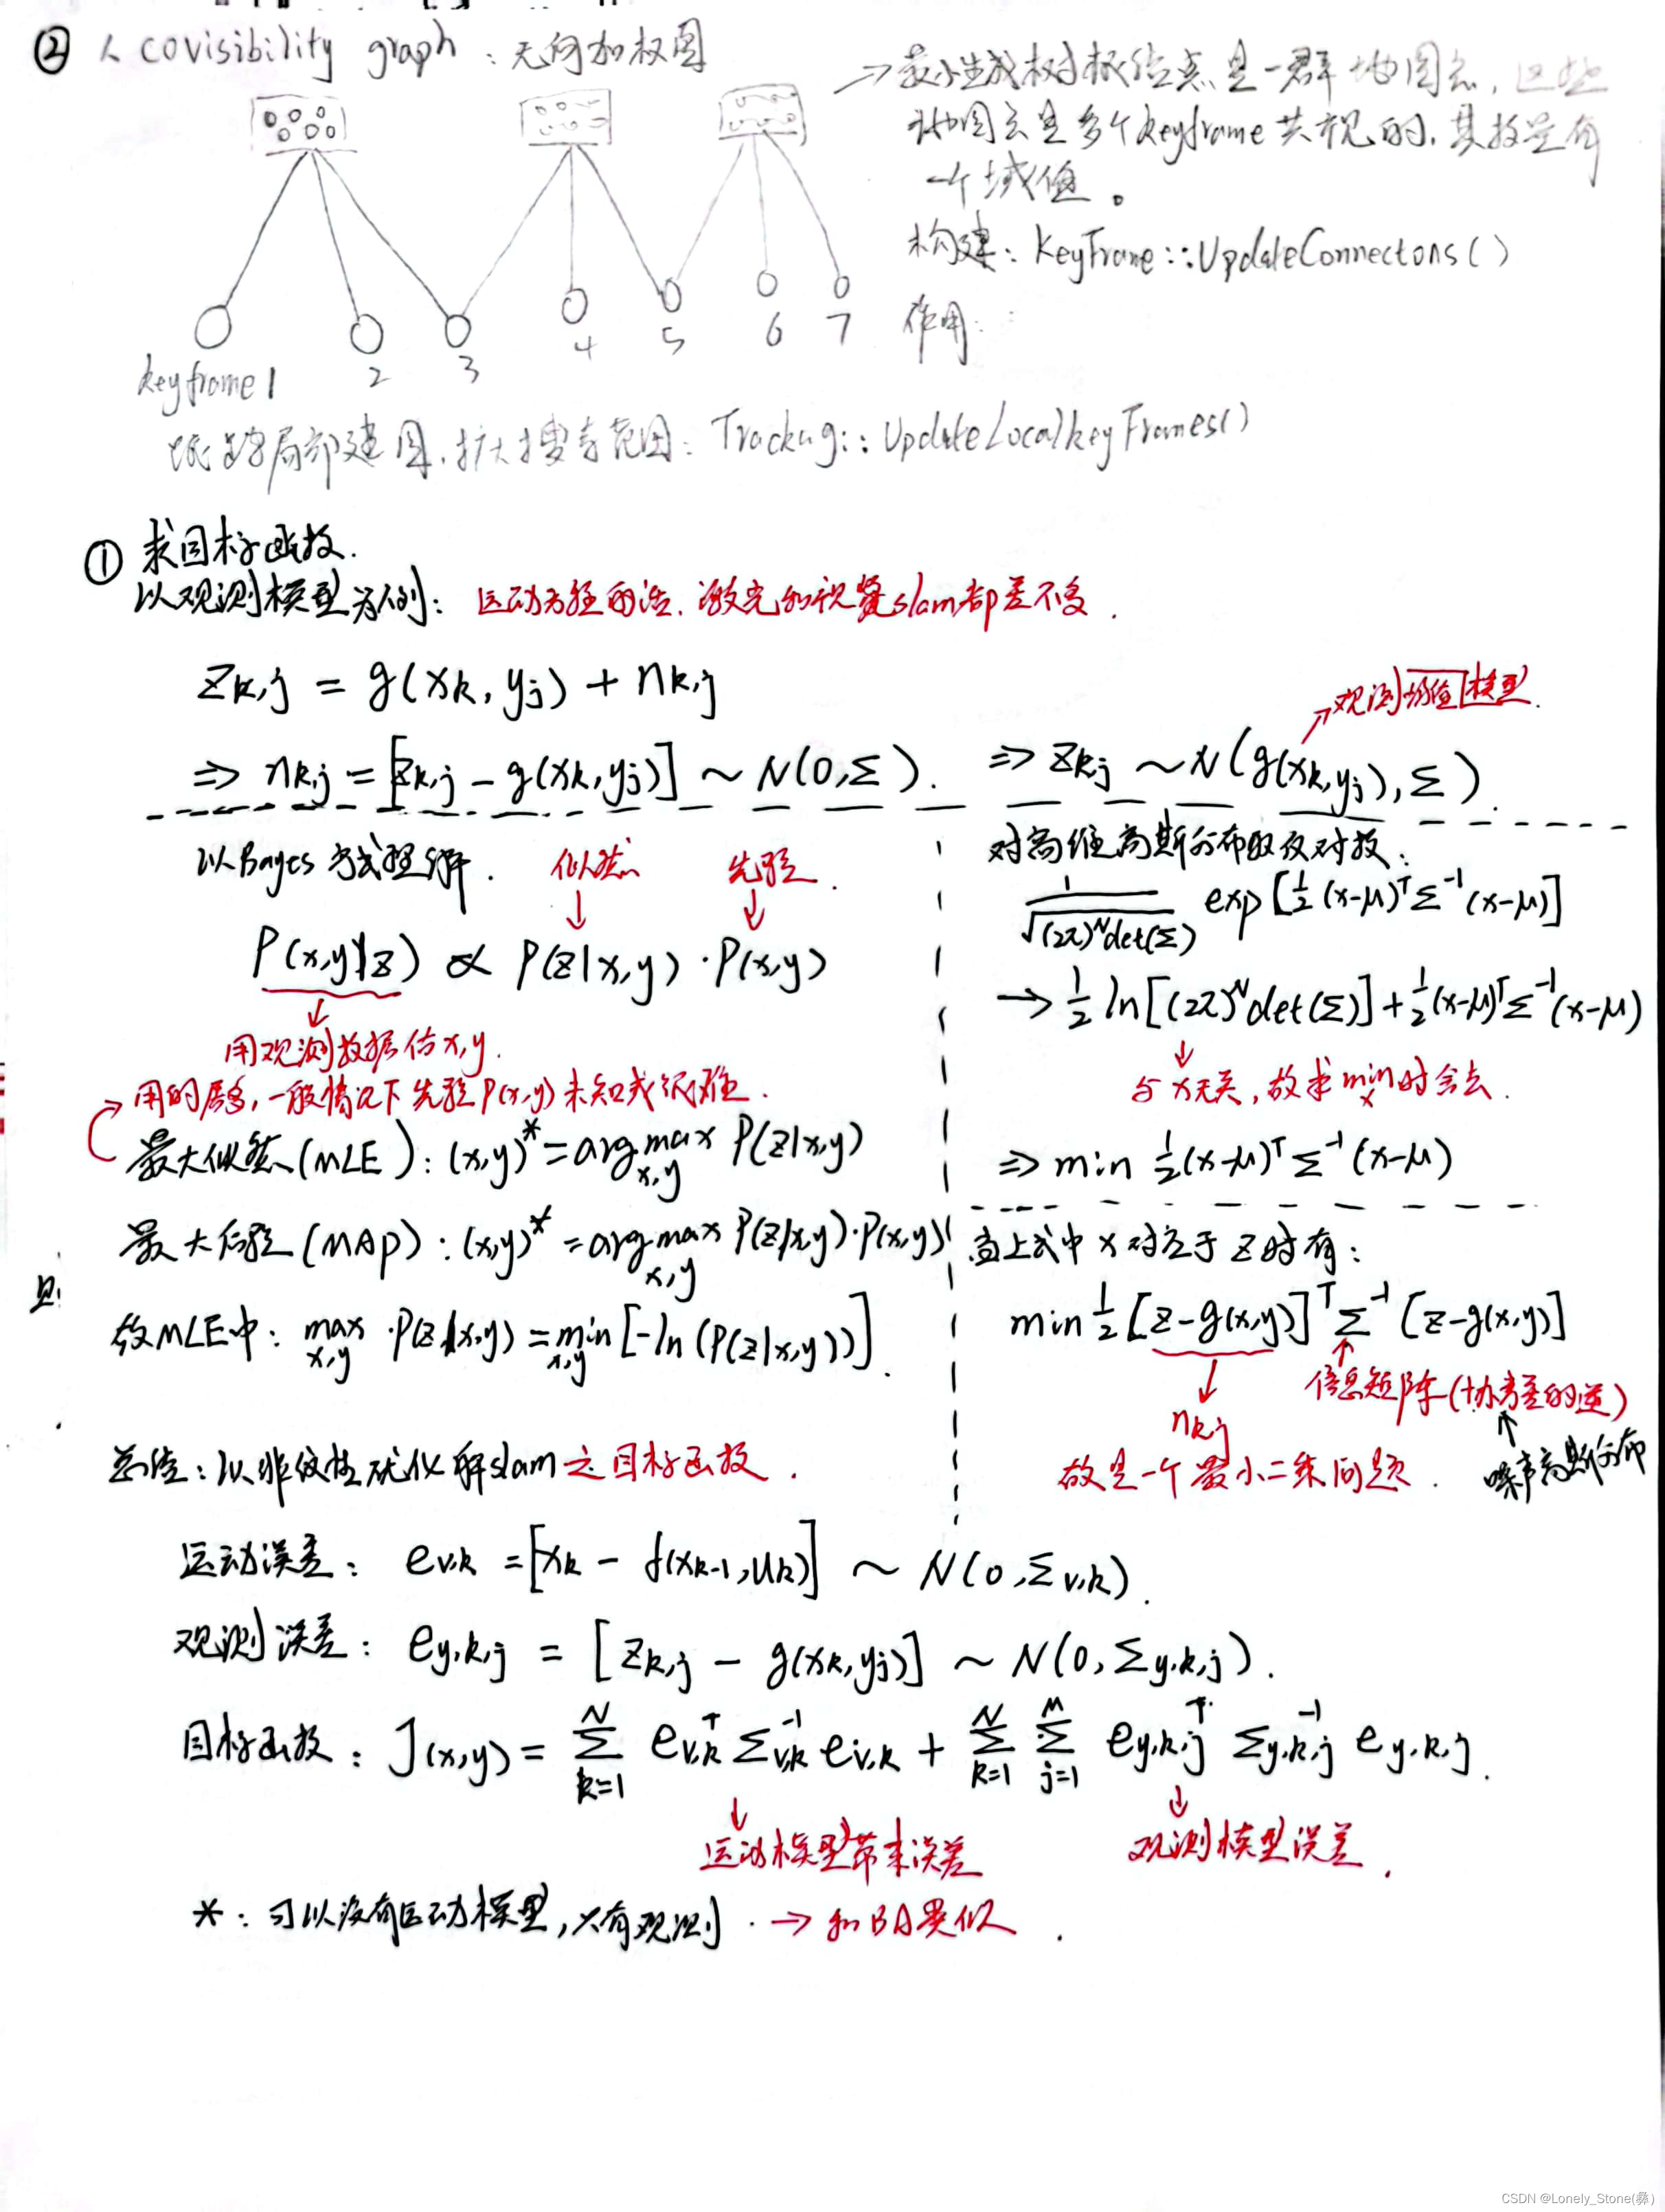 ② covisibility graph：无向加权图
→最小生成树根结点是一群地图点，这些
地图点是多个keyframe共视的，其数量有
一个域值。
构建：KeyFrame::UpdateConnectons()
作用：
keyframe1 2 3 4 5 6 7
跟踪局部建图，扩大搜索范围：Tracking::UpdateLocalkeyFrames()
① 求目标函数．
以观测模型为例： 运动方程的话，激光和视觉slam都差不多．
z_{k,j} = g(x_k, y_j) + n_{k,j}
→观测均值模型．
⇒ n_{k,j} = [z_{k,j} - g(x_k, y_j)] ~ N(0, Σ)． ⇒ z_{kj} ~ N(g(x_k, y_j), Σ)．
以Bayes方式理解．
似然 先验．
↓ ↓
P(x,y|z) ∝ P(z|x,y)·P(x,y)
↓
用观测数据估x,y．
→用的居多，一般情况下先验P(x,y)未知或很难．
最大似然(MLE)：(x,y)^* = arg max_{x,y} P(z|x,y)
最大后验(MAP)：(x,y)^* = arg max_{x,y} P(z|x,y)·P(x,y)
故MLE中：max_{x,y} ·P(z|x,y) = min_{x,y} [-ln(P(z|x,y))]．
对高维高斯分布取负对数：
1/√((2π)^N det(Σ)) exp[½(x-μ)^T Σ^{-1}(x-μ)]
→ ½ ln[(2π)^N det(Σ)] + ½(x-μ)^T Σ^{-1}(x-μ)
↓
与x无关，故求min_x时舍去．
⇒ min ½(x-μ)^T Σ^{-1}(x-μ)
当上式中x对应于z时有：
min ½ [z-g(x,y)]^T Σ^{-1} [z-g(x,y)]
↓ ↑
信息矩阵(协方差的逆)
n_{kj} ↑
故是一个最小二乘问题． 噪声高斯分布
总结：以非线性优化解slam之目标函数．
运动误差：e_{v,k} = [x_k - f(x_{k-1}, u_k)] ~ N(0, Σ_{v,k})．
观测误差：e_{y,k,j} = [z_{k,j} - g(x_k, y_j)] ~ N(0, Σ_{y,k,j})．
目标函数：J(x,y) = Σ_{k=1}^{N} e_{v,k}^T Σ_{v,k}^{-1} e_{v,k} + Σ_{k=1}^{N} Σ_{j=1}^{M} e_{y,k,j}^T Σ_{y,k,j}^{-1} e_{y,k,j}．
↓ ↓
运动模型带来误差 观测模型误差．
*：可以没有运动模型，只有观测．→ 和BA类似．
CSDN @Lonely_Stone(彝)